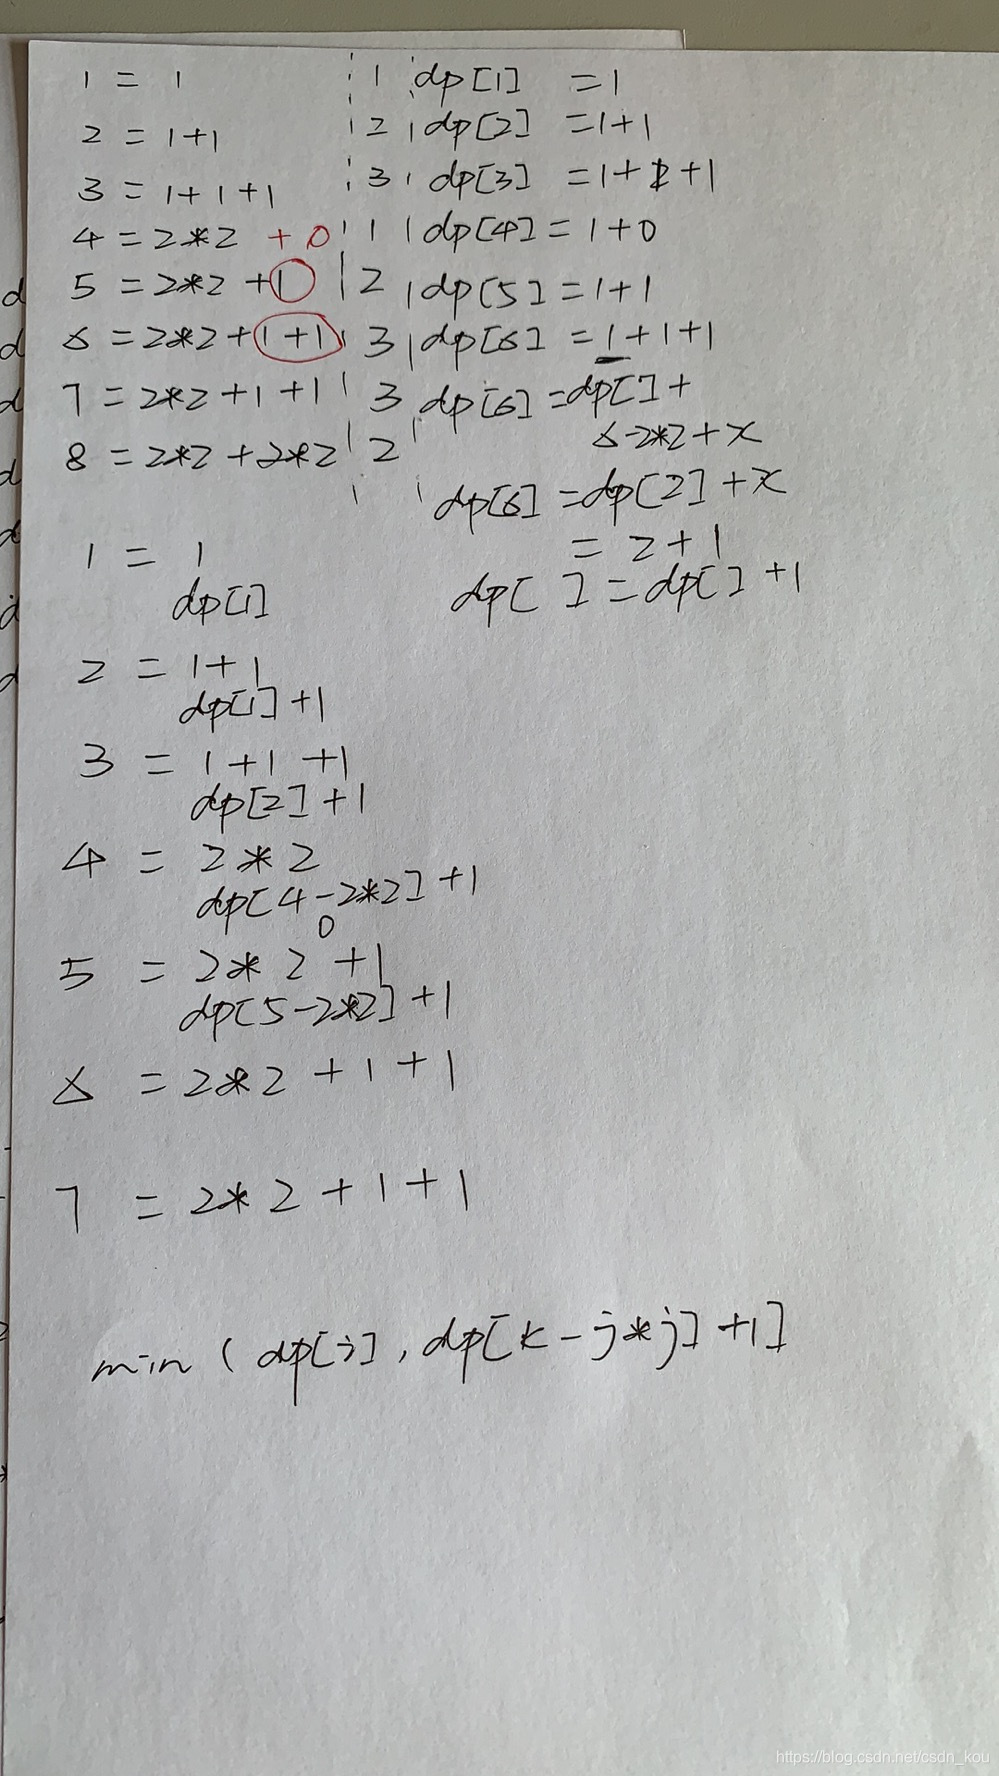 1 = 1 1 dp[1] = 1
2 = 1+1 2 dp[2] = 1+1
3 = 1+1+1 3 dp[3] = 1+1+1
4 = 2*2 + 0 1 dp[4] = 1+0
5 = 2*2 +1 2 dp[5] = 1+1
6 = 2*2+1+1 3 dp[6] = 1+1+1
7 = 2*2+1+1 3 dp[6] = dp[]+
6-2*2+x
8 = 2*2+2*2 2
dp[6] = dp[2]+x
= 2+1
dp[ ] = dp[]+1
1 = 1
dp[1]
2 = 1+1
dp[1]+1
3 = 1+1+1
dp[2]+1
4 = 2*2
dp[4-2*2]+1
0
5 = 2*2+1
dp[5-2*2]+1
6 = 2*2+1+1
7 = 2*2+1+1
min(dp[j], dp[k-j*j]+1]
https://blog.csdn.net/csdn_kou